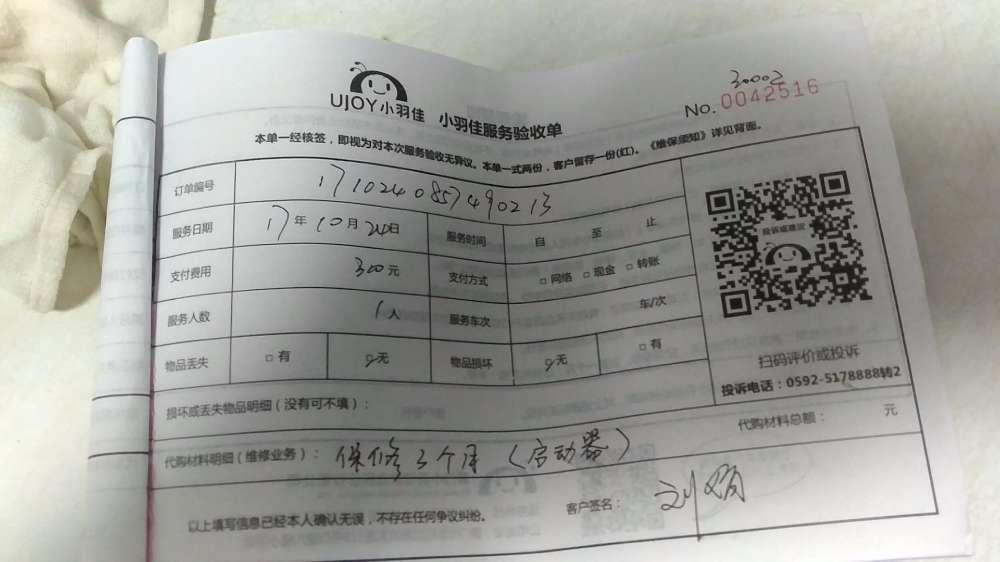 UJOY小羽佳 小羽佳服务验收单
30002
No. 0042516
本单一经核签，即视为对本次服务验收无异议。本单一式两份，客户留存一份(红)。《维保须知》详见背面。
订单编号 1710240857490213
服务日期 17年10月24日 服务时间 自 至 止
支付费用 300元 支付方式 □网络 □现金 □转账
服务人数 1人 服务车次 车/次
物品丢失 □有 无 物品损坏 无 □有
投诉或建议
扫码评价或投诉
投诉电话：0592-5178888转2
损坏或丢失物品明细（没有可不填）：
代购材料明细（维修业务）：保修3个月（启动器） 代购材料总额： 元
以上填写信息已经本人确认无误，不存在任何争议纠纷。 客户签名：刘